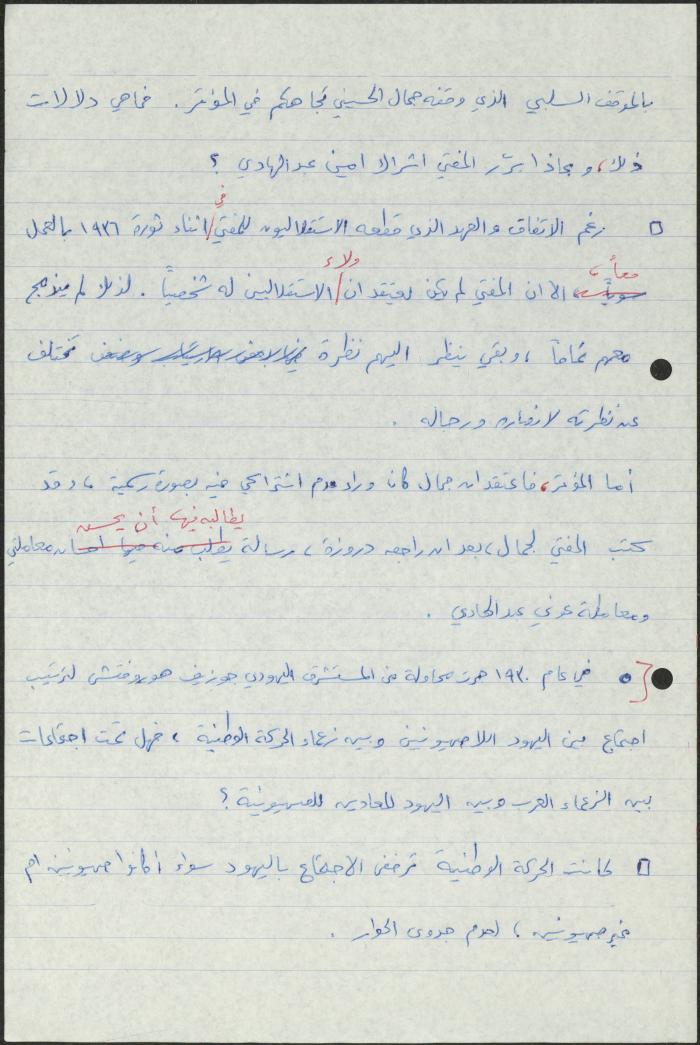 بالموقف السلبي الذي وقفه جمال الحسيني تجاهكم في المؤتمر . فما هي دلالات
ذلك، وبماذا برّر المفتي اشراك امين عبد الهادي ؟
□ رغم الاتفاق والعهد الذي قطعه الاستقلاليون للمفتي / في اثناء ثورة ١٩٣٦ بالعمل
سويةً معاً، الا ان المفتي لم يكن يعتقد ان / ولاء الاستقلاليين له شخصياً . لذلك لم يندمج
معهم تماماً ، وبقي ينظر اليهم نظرة تختلف
عن نظرته لانصاره ورجاله .
أما المؤتمر، فاعتقد ان جمال كان وراء عدم اشتراكي فيه بصورة رسمية ، وقد
يطالبه فيها أن يحسن
كتب المفتي لجمال ، بعد ان راجعه دروزة ، رسالة يطلب منه فيها احسان معاملتي
ومعاملة عوني عبد الهادي .
• في عام ١٩٣٠ جرت محاولة من المستشرق اليهودي جوزيف هوروفتش لترتيب
اجتماع بين اليهود اللاصهيونيين وبين زعماء الحركة الوطنية ، فهل تمت اجتماعات
بين الزعماء العرب وبين اليهود المعادين للصهيونية ؟
□ كانت الحركة الوطنية ترفض الاجتماع باليهود سواء أكانوا صهيونيين ام
غير صهيونيين ، لعدم جدوى الحوار .